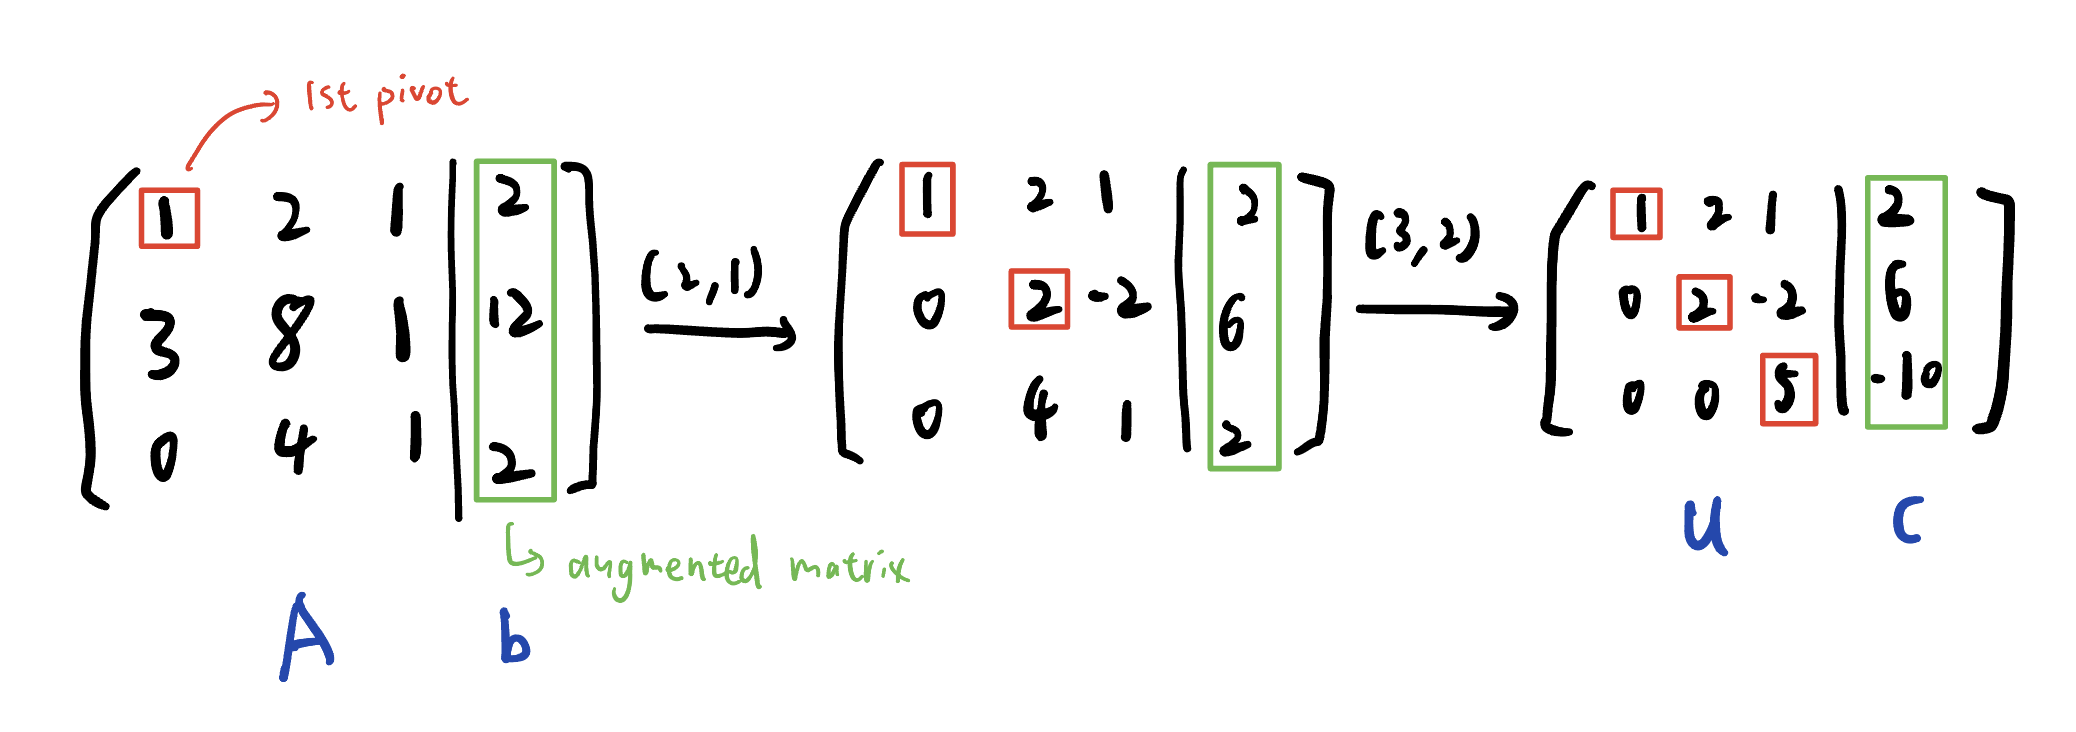 1st pivot
1 2 1 | 2
3 8 1 | 12
0 4 1 | 2
(2,1)
1 2 1 | 2
0 2 -2 | 6
0 4 1 | 2
(3,2)
1 2 1 | 2
0 2 -2 | 6
0 0 5 | -10
augmented matrix
A b
U C